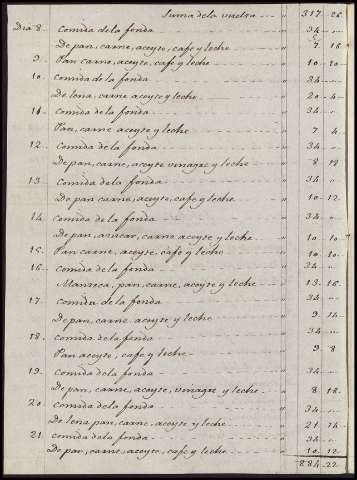 Suma dela vuelta " 317 26
Dia 8 Comida dela fonda " 34 "
De pan, carne, aceyte, cafe y leche " 7 16
9 Pan carne, aceyte, cafe y leche " 10 20
10 Comida de la fonda " 34 "
De leña, carne aceyte y leche " 20 4
11 Comida de la fonda " 34 "
Pan, carne aceyte y leche " 7 4
12 Comida dela fonda " 34 "
De pan, carne, aceyte vinagre y leche " 8 12
13 Comida dela fonda " 34 "
De pan carne, aceyte, cafe y leche " 10 12
14 Comida dela fonda " 34 "
De pan, azucar, carne aceyte y leche " 10 10
15 Pan carne, aceyte, cafe y leche " 10 10
16 Comida de la fonda " 34 "
Manteca, pan, carne, aceyte y leche " 13 16
17 Comida de la fonda " 34 "
De pan, carne aceyte y leche " 9 14
18 Comida dela fonda " 34 "
Pan aceyte, cafe y leche " 9 8
19 Comida dela fonda " 34 "
De pan, carne, aceyte, vinagre y leche " 8 18
20 Comida dela fonda " 34 "
De leña pan, carne, aceyte y leche " 21 14
21 Comida dela fonda " 34 "
De pan, carne, aceyte, cafe y leche " 10 12
884 22